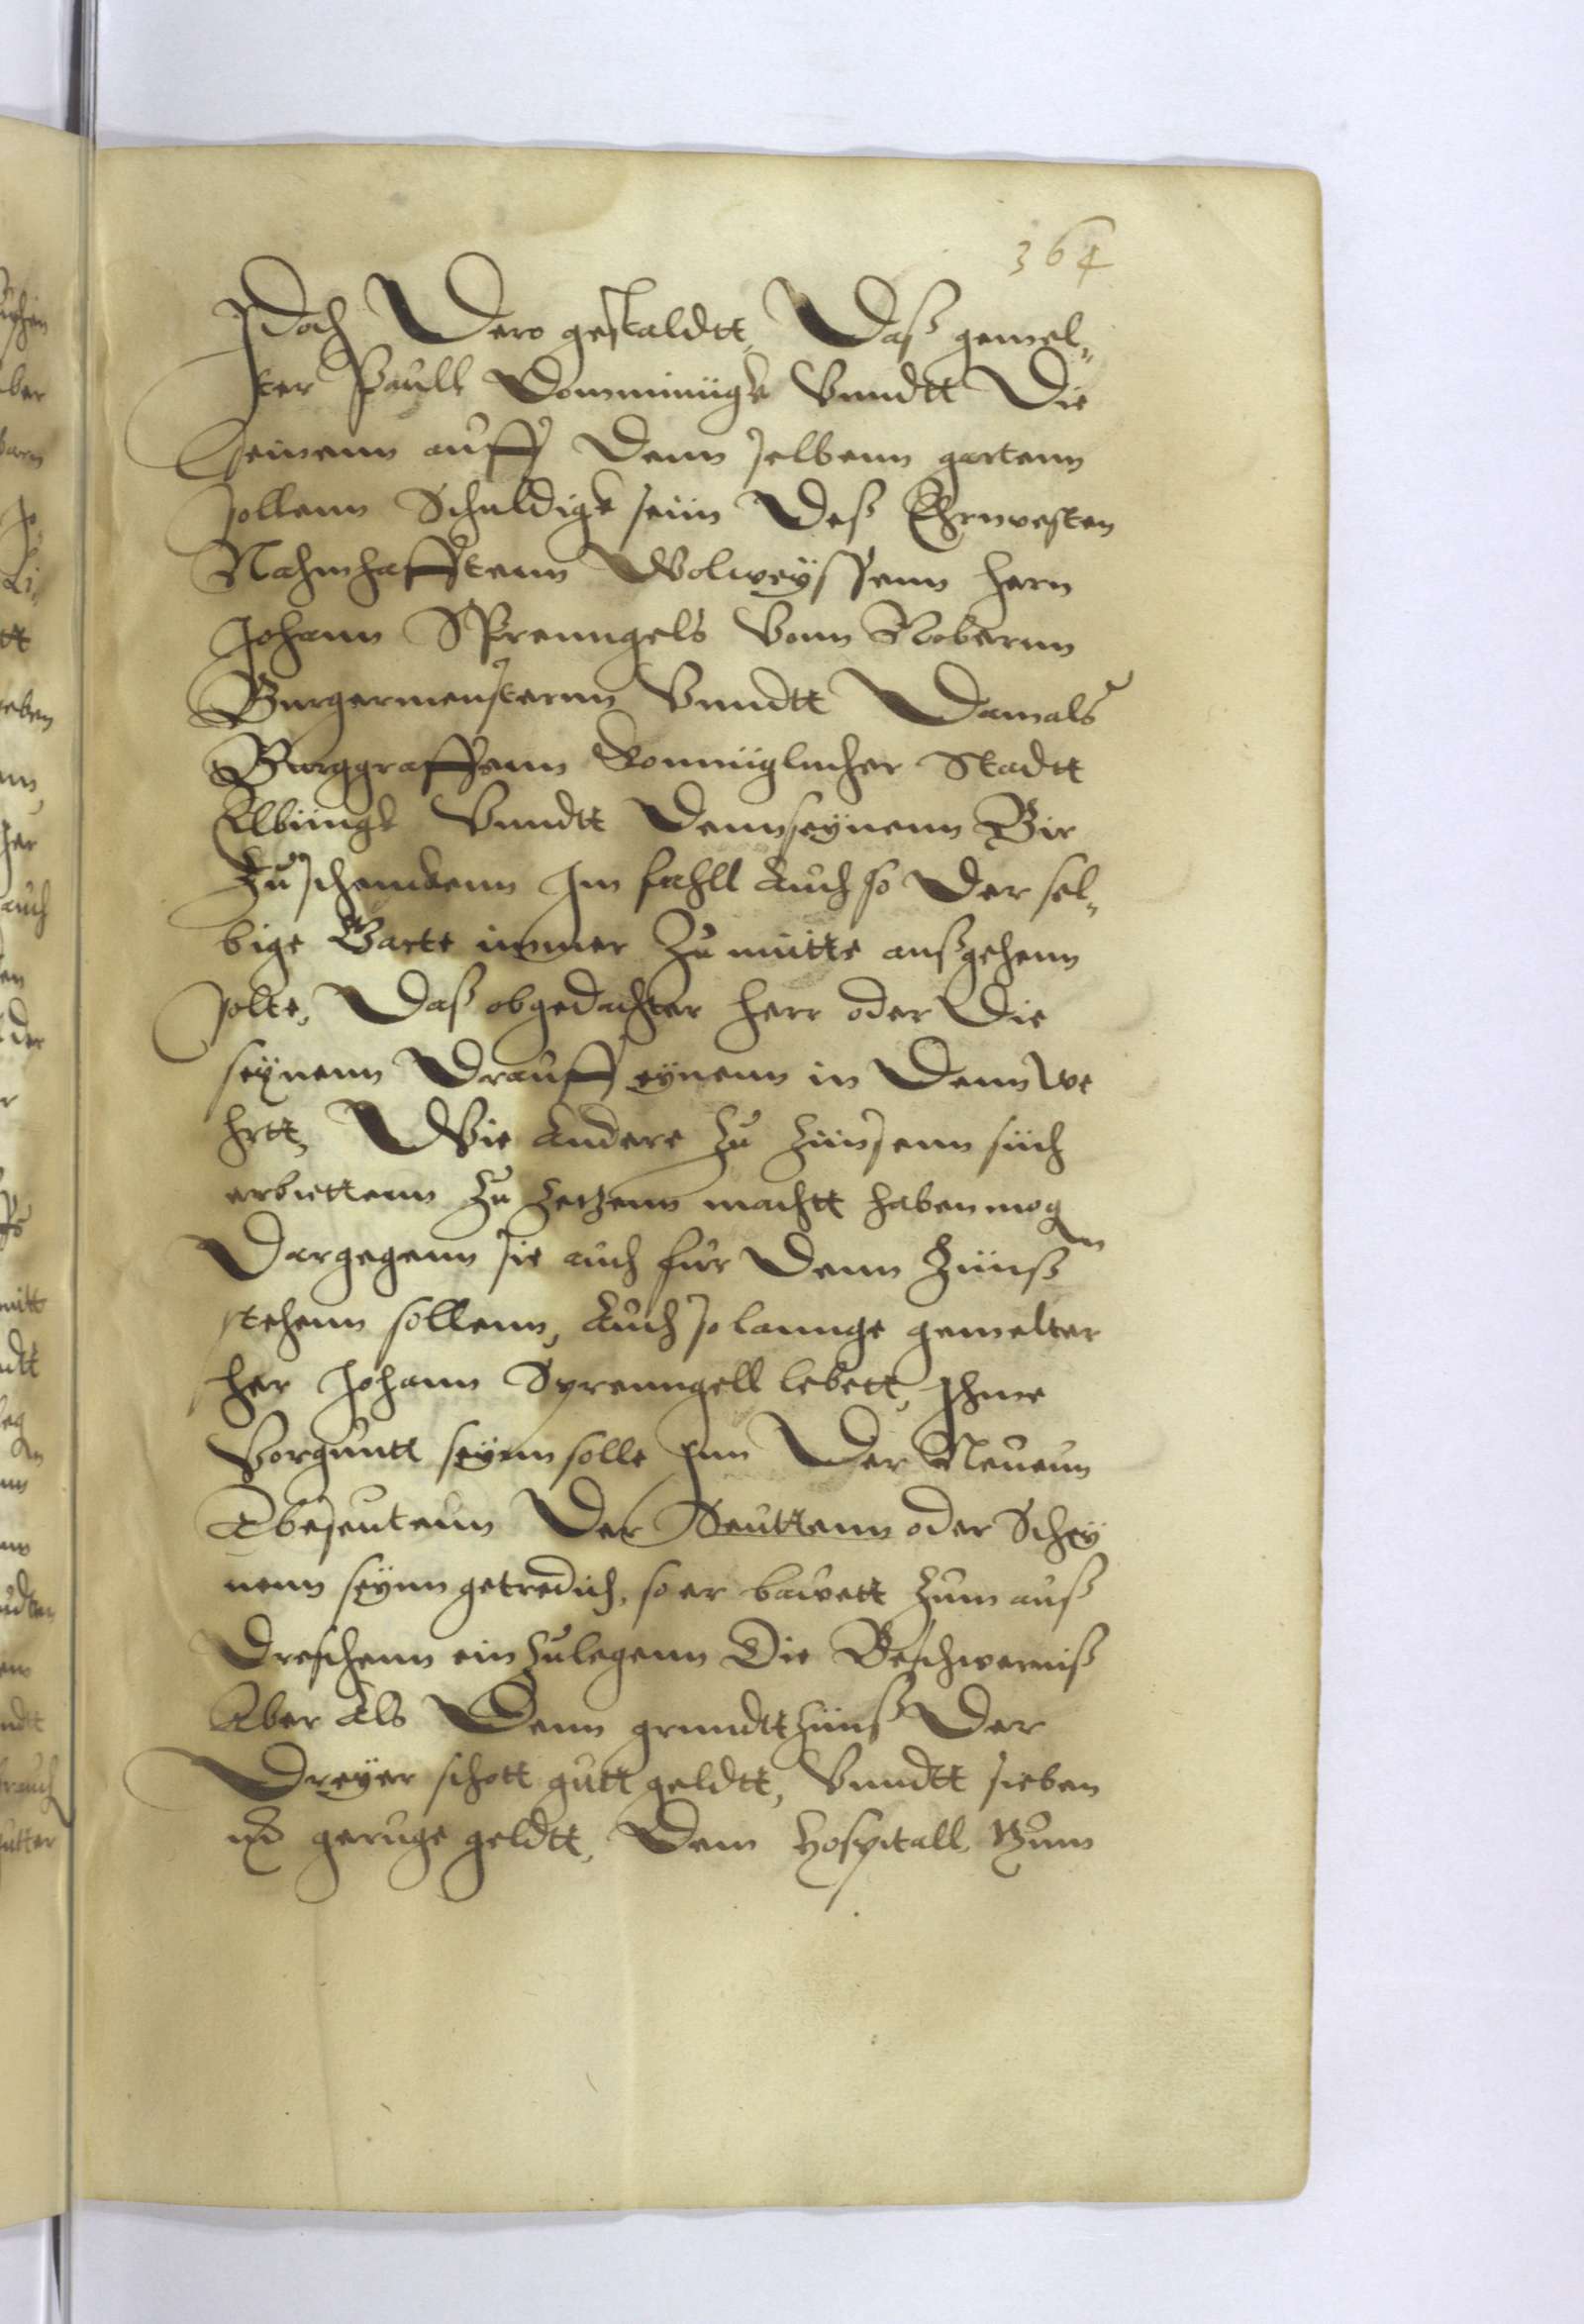 364
Jdoch Dero gestaldtt, Daß gemel„
ter Paull Domminigk Vnndtt Die
Seinenn auff Denn selbenn gartenn
sollenn Schuldigk sein Deß Ehrnvesten
Nahmhafftenn Wolweyssenn hern
Johann Sprenngels Vonn Robernn
Burgermeysternn Vnndtt Damals
Burggraffenn Konniglicher Stadtt
Elbingk Vnndtt Denn seynenn Bir
Zu schennckenn Jm fahll Auch so Der sel„
bige Garte immer Zu mitte außgehenn
solte, Daß obgedachter herr oder Die
seynenn Drauff eynenn in Denn we
hrtt, Wie Andere Zu Zinsenn sich
erbittenn Zu Zetzenn machtt haben mog
en
Dargegenn sie auch fur Denn Zinß
stehenn sollenn, Auch so lannge gemelter
her Johann Sprenngell lebett, Jhme
Vorguntt seynn solle Jnn Der Neuenn
Abeseutenn Der Seuttenn oder Schey
nenn seynn getredich, so er bawett Zum auß
Dreschenn ein Zulegenn Die Beschwerniß
Aber Als Denn grundtt Zinß Der
Dreyer schott gutt geldtt, Vnndtt sieben
geringe geldtt, Dem Hospitall Zum